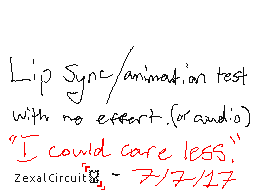 Lip Sync/animation test
with no effort. (or audio)
"I could care less."
ZexalCircuit - 7/7/17